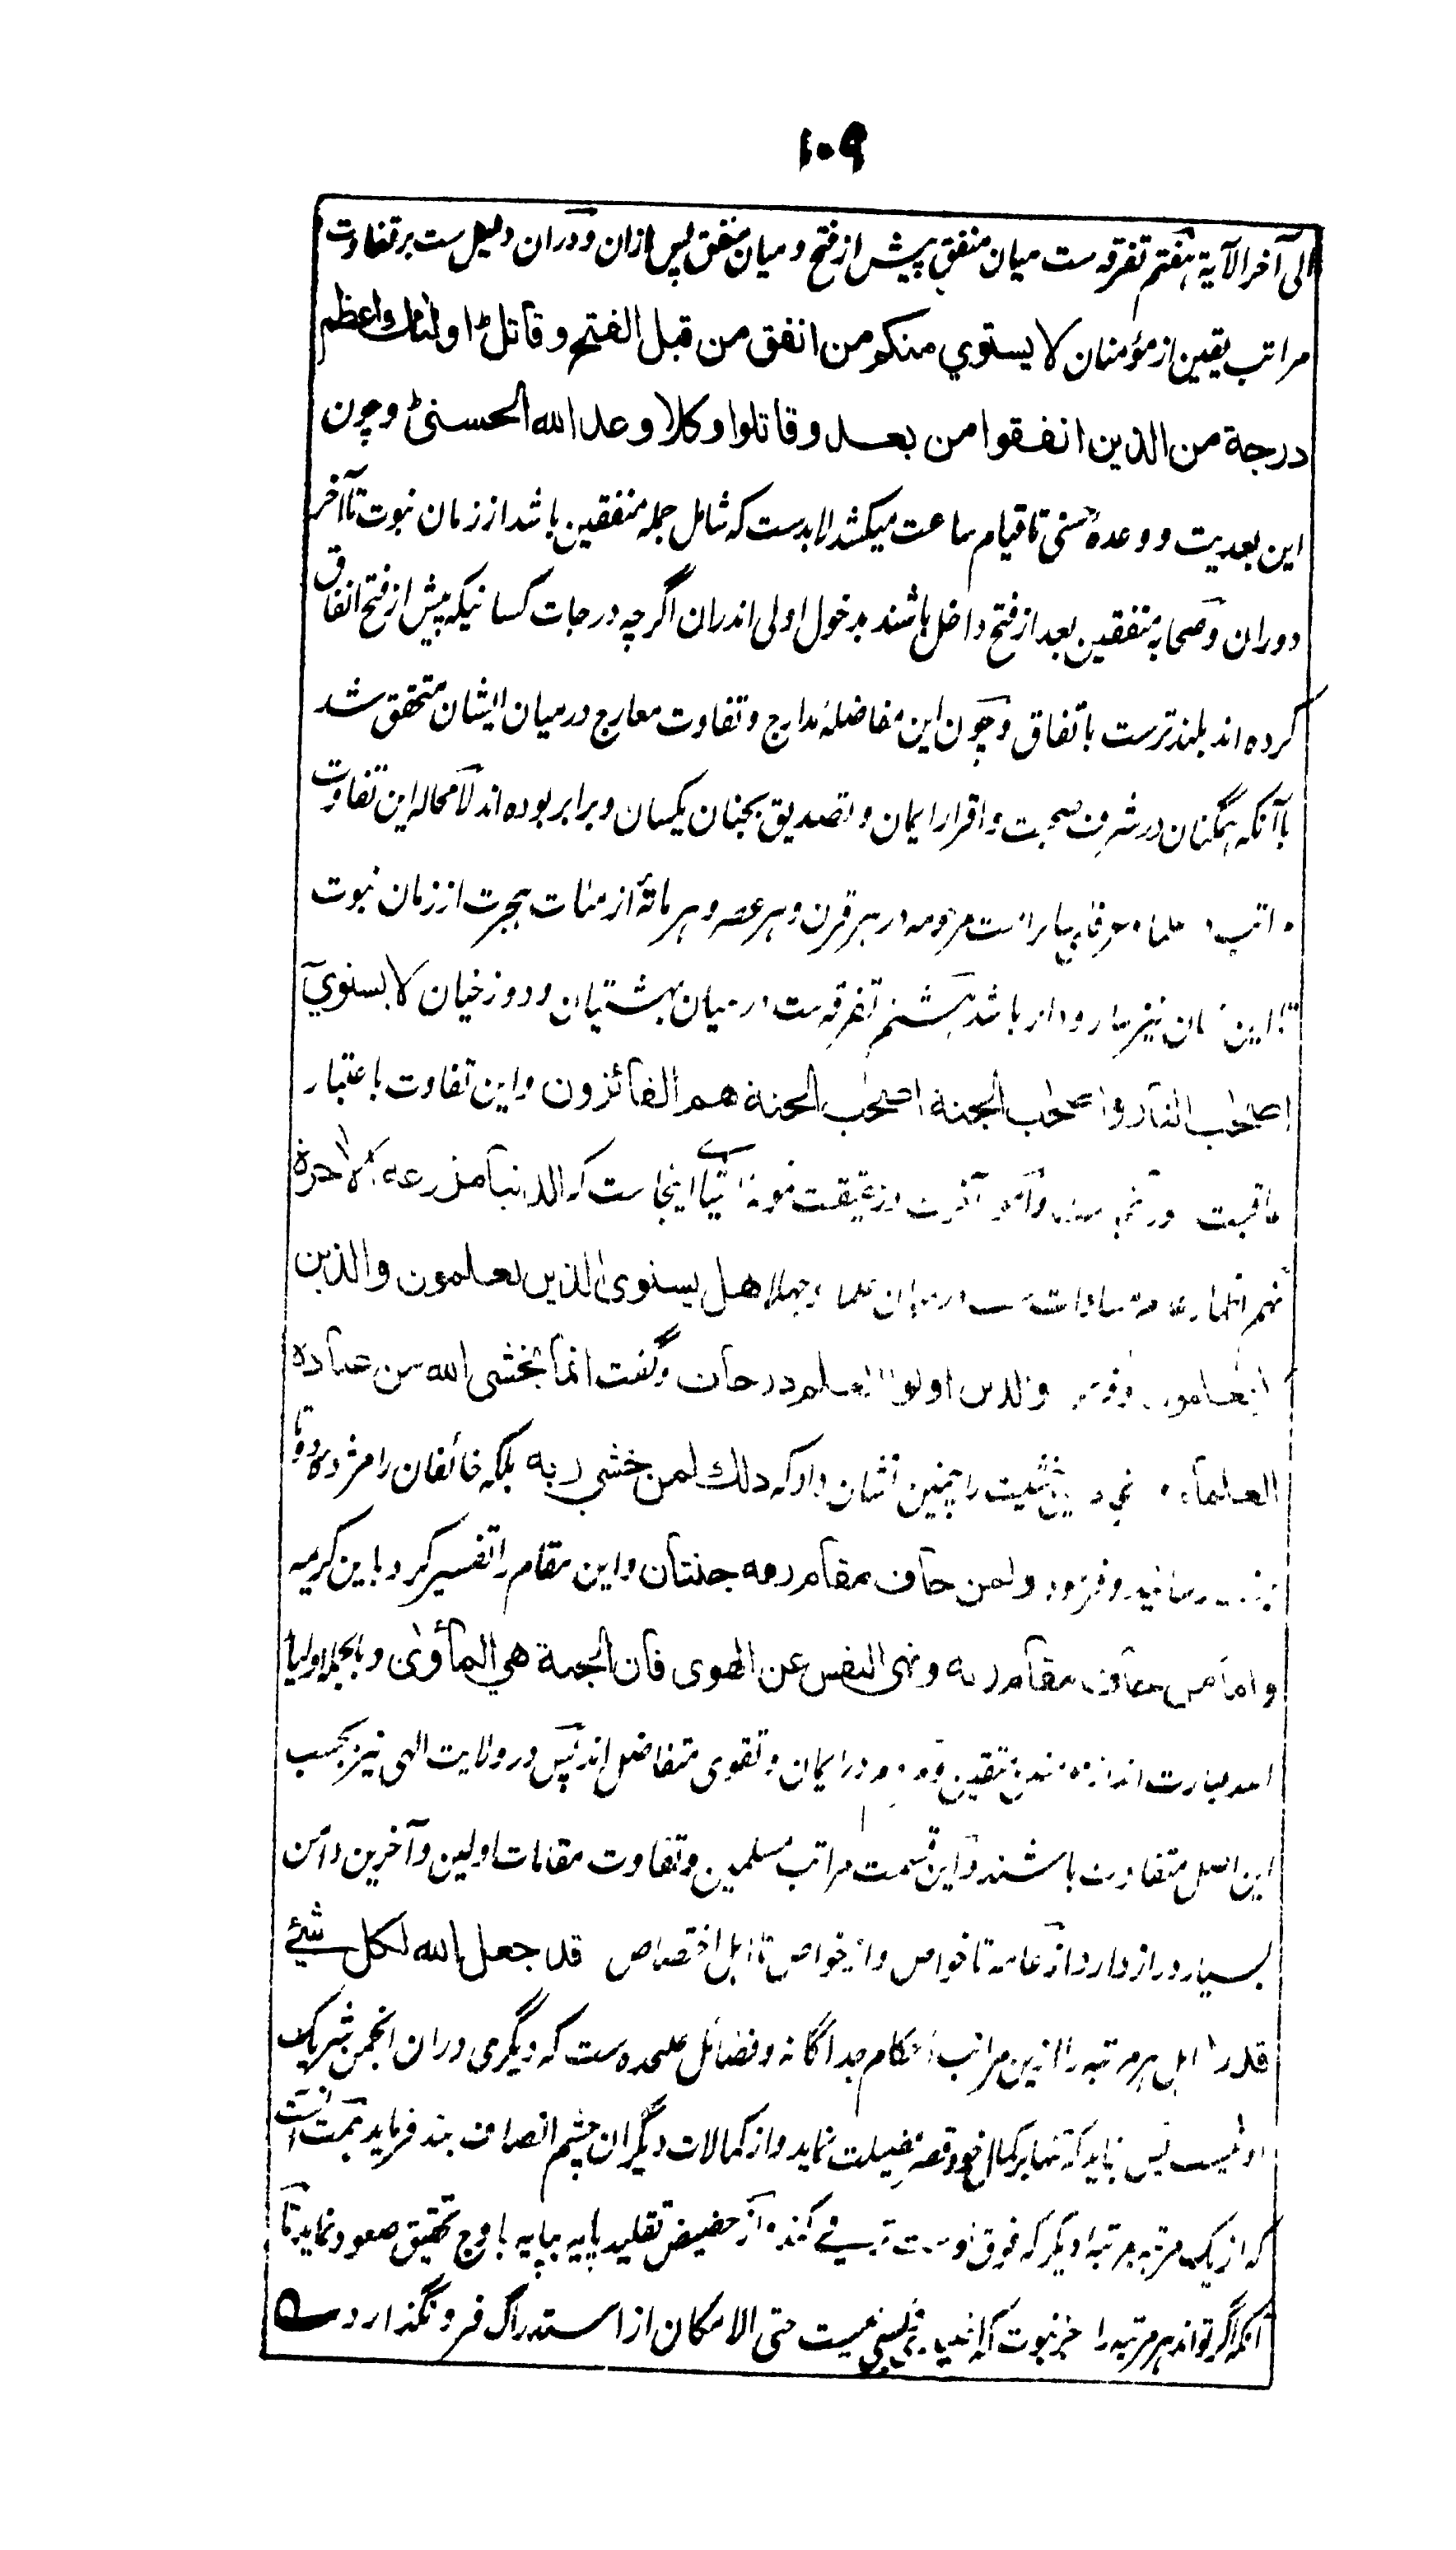 ۱۰۹
الی آخر الآیة هفتم تفرقه ست میان منفق پیش از فتح و میان منفق پس ازان و دران دلیل ست بر تفاوت
مراتب یقین از مؤمنان لا یستوي منکم من انفق من قبل الفتح و قاتل اولئك اعظم
درجة من الذین انفقوا من بعد و قاتلوا و کلا وعد الله الحسنیٰ و چون
این بعدیت و وعدهٔ حسنی تا قیام ساعت میکشد لا بدست که شامل جمله منفقین باشد از زمان نبوت تا آخر
دوران و صحابه منفقین بعد از فتح داخل باشند بدخول اولی اندران اگرچه درجات کسانیکه پیش از فتح انفاق
کرده اند بلندترست باتفاق و چون این مفاضلهٔ مدارج و تفاوت معارج درمیان ایشان متحقق شد
با آنکه همگنان در شرف صحبت و اقرار ایمان و تصدیق بجنان یکسان و برابر بوده اند لامحاله این تفاوت
علماء در هر قرن و هر عصر و هر مائهٔ از مئات هجرت از زمان نبوت
تا این نیز باشد هشتم تفرقه ست درمیان بهشتیان و دوزخیان لا یستوي
اصحٰب النار و اصحٰب الجنة اصحٰب الجنة هم الفائزون و این تفاوت باعتبار
عاقبت آخرت اینجاست که الدنیا مزرعة الاخرة
نهم مساوات ست درمیان علما و جهلا هل یستوی الذین یعلمون والذین
لا یعلمون والذین اوتوا العلم درجات و گفت انما یخشی الله من عباده
العلماء خشیت را چنین نشان داد که ذلك لمن خشي ربه بلکه خائفان را مژدهٔ دو تا
رسانید و فرمود ولمن خاف مقام ربه جنتان و این مقام را تفسیر کرد باین کریمه
و اما من خاف مقام ربه و نهی النفس عن الهوی فان الجنة هي المأوی و بالجمله اولیا
عبارت اند از مؤمنین متقین و مردم در ایمان و تقوی متفاضل اند پس در ولایت الهی نیز بحسب
این اصل متفاوت باشند و این قسمت مراتب مسلمین و تفاوت مقامات اولین و آخرین دامن
بسیار دراز دارد از عامه تا خواص و از خواص تا اهل اختصاص قد جعل الله لکل شیئ
قدرا اهل هر مرتبه را ازین مراتب احکام جداگانه و فضائل علحده ست که دیگری دران انجمن شریک
او نیست پس باید که تنها بر کمال خود قصر فضیلت نماید و از کمالات دیگران چشم انصاف بند فرماید همت آنست
که از یک مرتبه بمرتبهٔ دیگر که فوق اوست ترقی کند و از حضیض تقلید پایه بپایه باوج تحقیق صعود نماید تا
آنکه اگر تواند هر مرتبه را جز نبوت که نیست حتی الامکان از استدراک فرو نگذارد